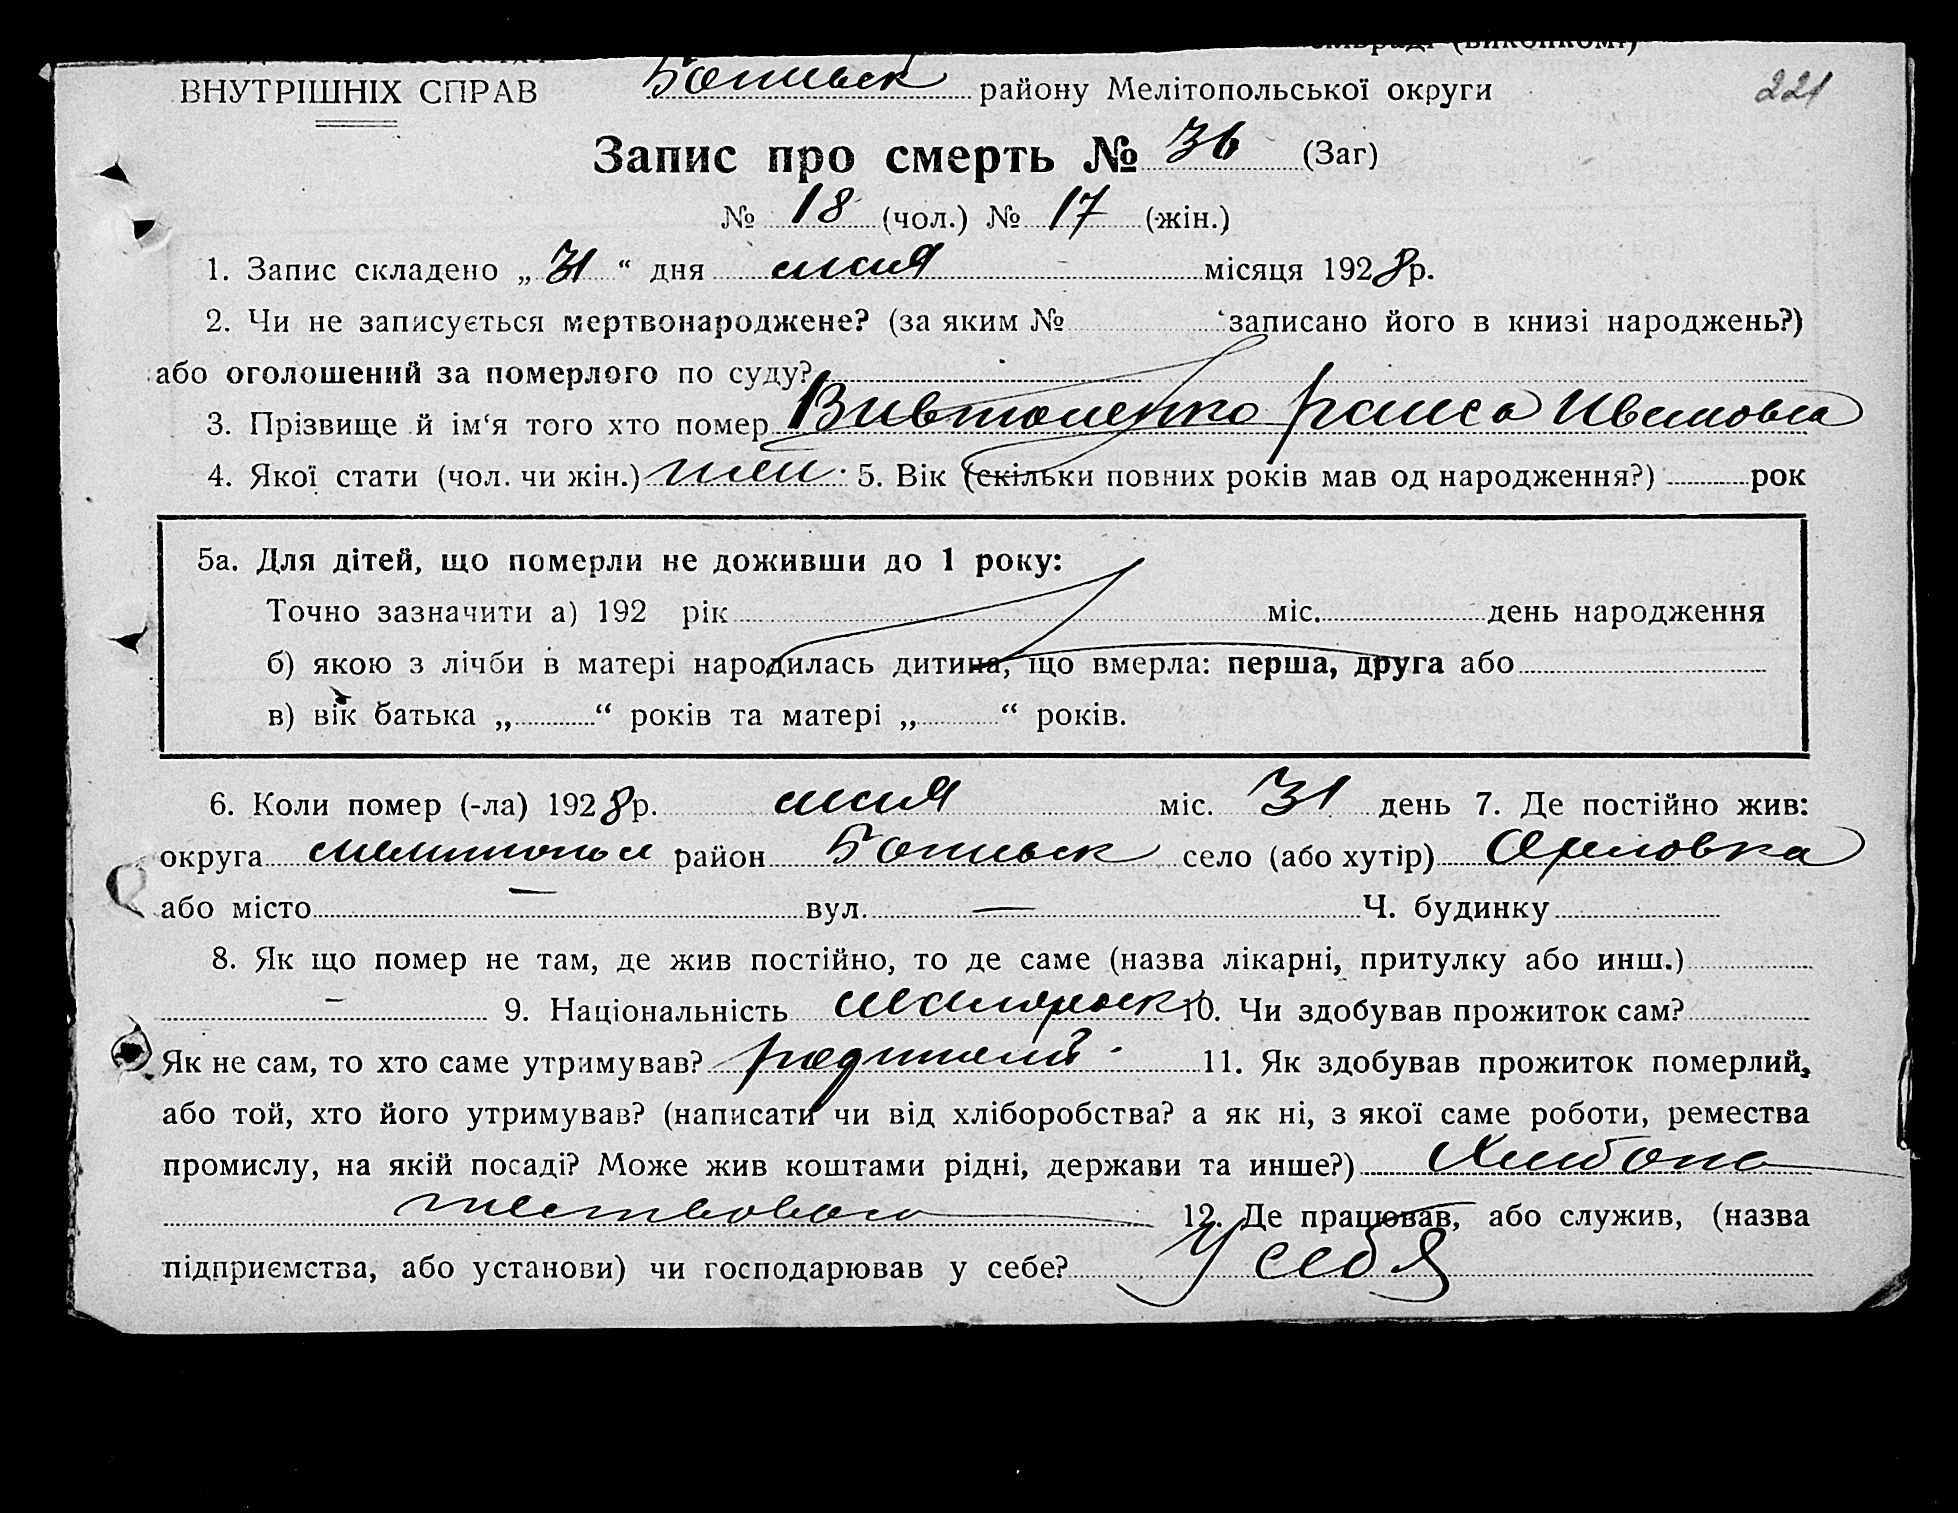 ВНУТРІШНІХ СПРАВ району Мелітопольської округи 221
Запис про смерть № 36 (Заг)
№ 18 (чол.) № 17 (жін.)
1. Запис складено „ 31 “ дня мая місяця 1928р.
2. Чи не записується мертвонароджене? (за яким № записано його в книзі народжень?)
або оголошений за померлого по суду?
3. Прізвище й ім‘я того хто помер Раиса Ивановна
4. Якої стати (чол. чи жін.) жен. 5. Вік (скільки повних років мав од народження?) рок
5а. Для дітей, що померли не доживши до 1 року:
Точно зазначити а) 192 рік міс. день народження
б) якою з лічби в матері народилась дитина, що вмерла: перша, друга або
в) вік батька „ “ років та матері „ “ років.
6. Коли помер (-ла) 1928р. мая міс. 31 день 7. Де постійно жив:
округа Мелитопол район село (або хутір) Орловка
або місто — вул. — Ч. будинку
8. Як що помер не там, де жив постійно, то де саме (назва лікарні, притулку або инш.)
– 9. Національність 10. Чи здобував прожиток сам?
Як не сам, то хто саме утримував? родители 11. Як здобував прожиток померлий,
або той, хто його утримував? (написати чи від хліборобства? а як ні, з якої саме роботи, ремества
промислу, на якій посаді? Може жив коштами рідні, держави та инше?) Хлебопа
шествовал 12. Де працював, або служив, (назва
підприємства, або установи) чи господарював у себе? У себя